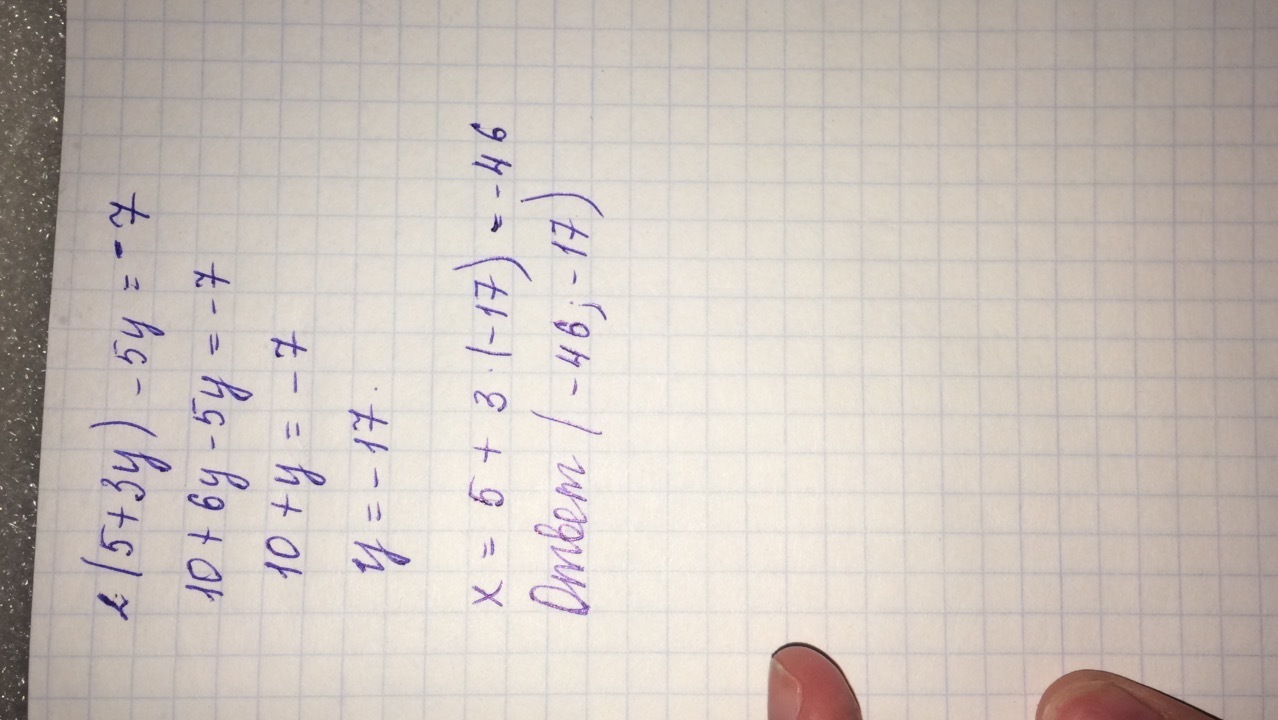 2(5+3y) -5y = -7
10+6y-5y = -7
10+y = -7
y = -17.
x = 5 + 3·(-17) = -46
Ответ (-46; -17)